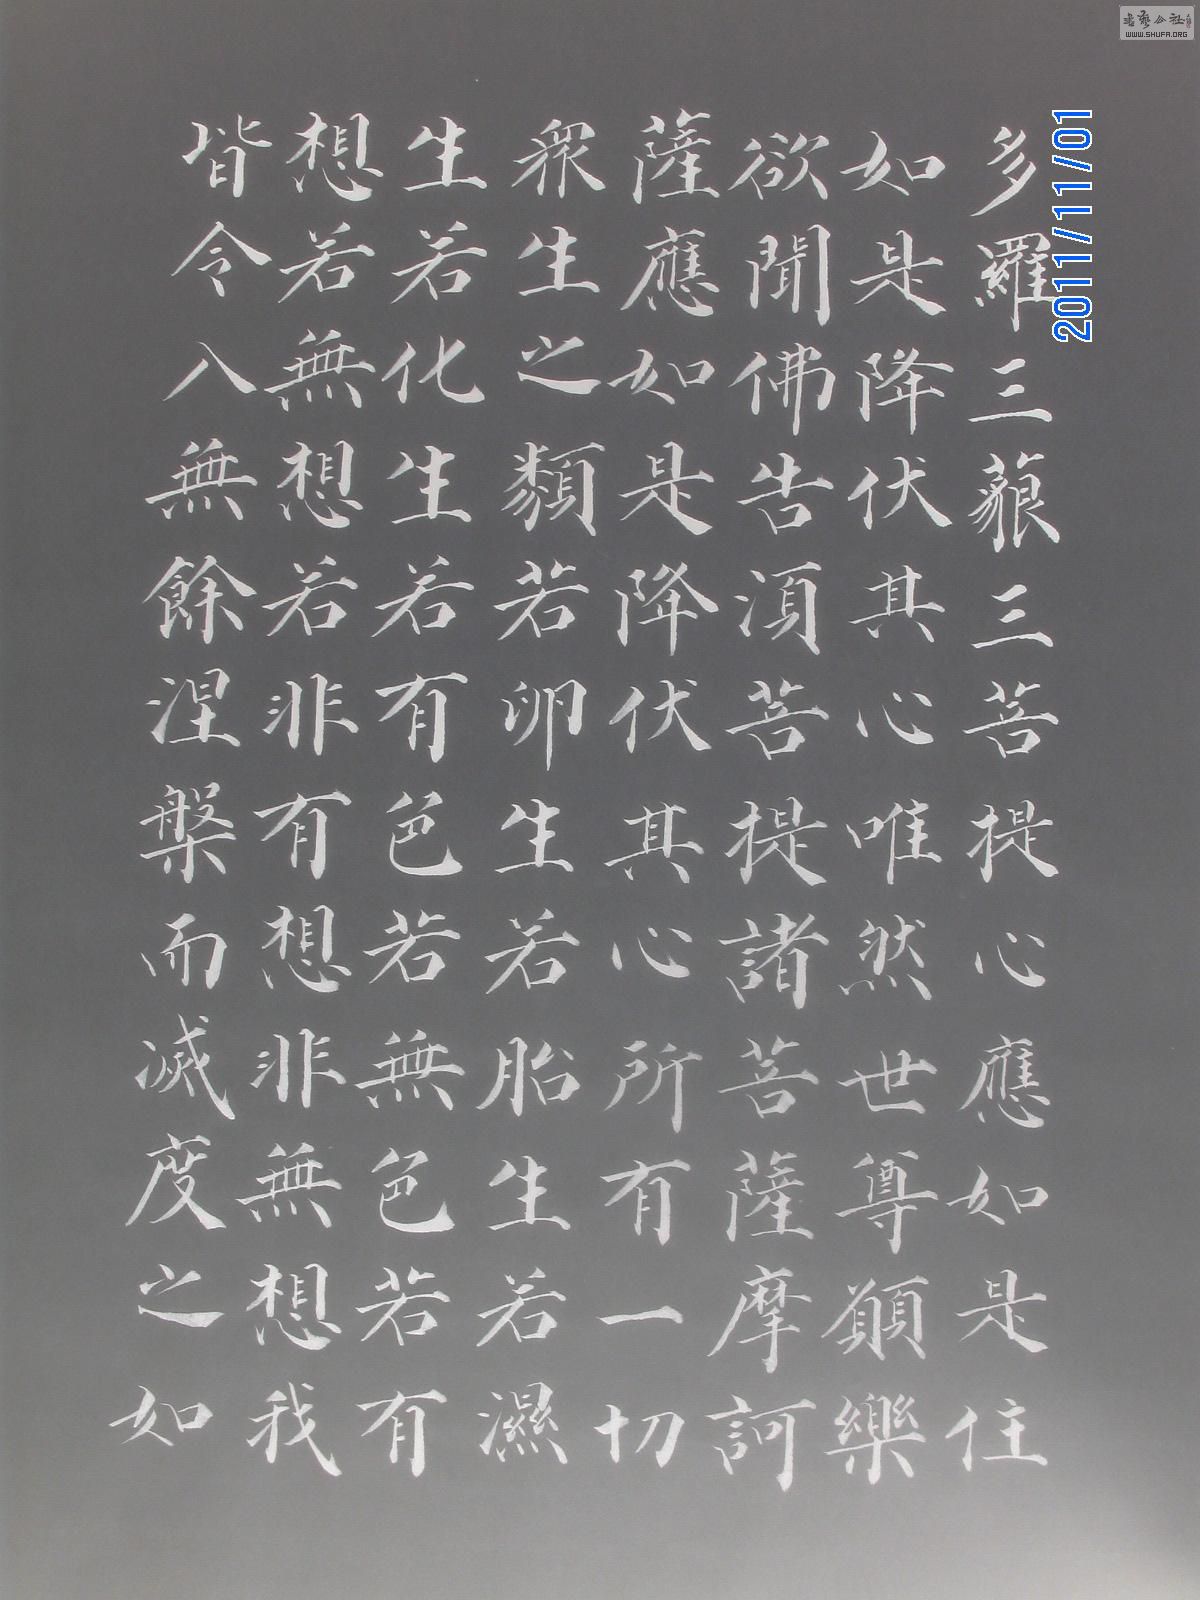 多羅三藐三菩提心應如是住
如是降伏其心唯然世尊願樂
欲聞佛告湏菩提諸菩薩摩訶
薩應如是降伏其心所有一切
衆生之類若卵生若胎生若濕
生若化生若有色若無色若有
想若無想若非有想非無想我
皆令入無餘涅槃而滅度之如
2011/11/01
書藝公社
WWW.SHUFA.ORG